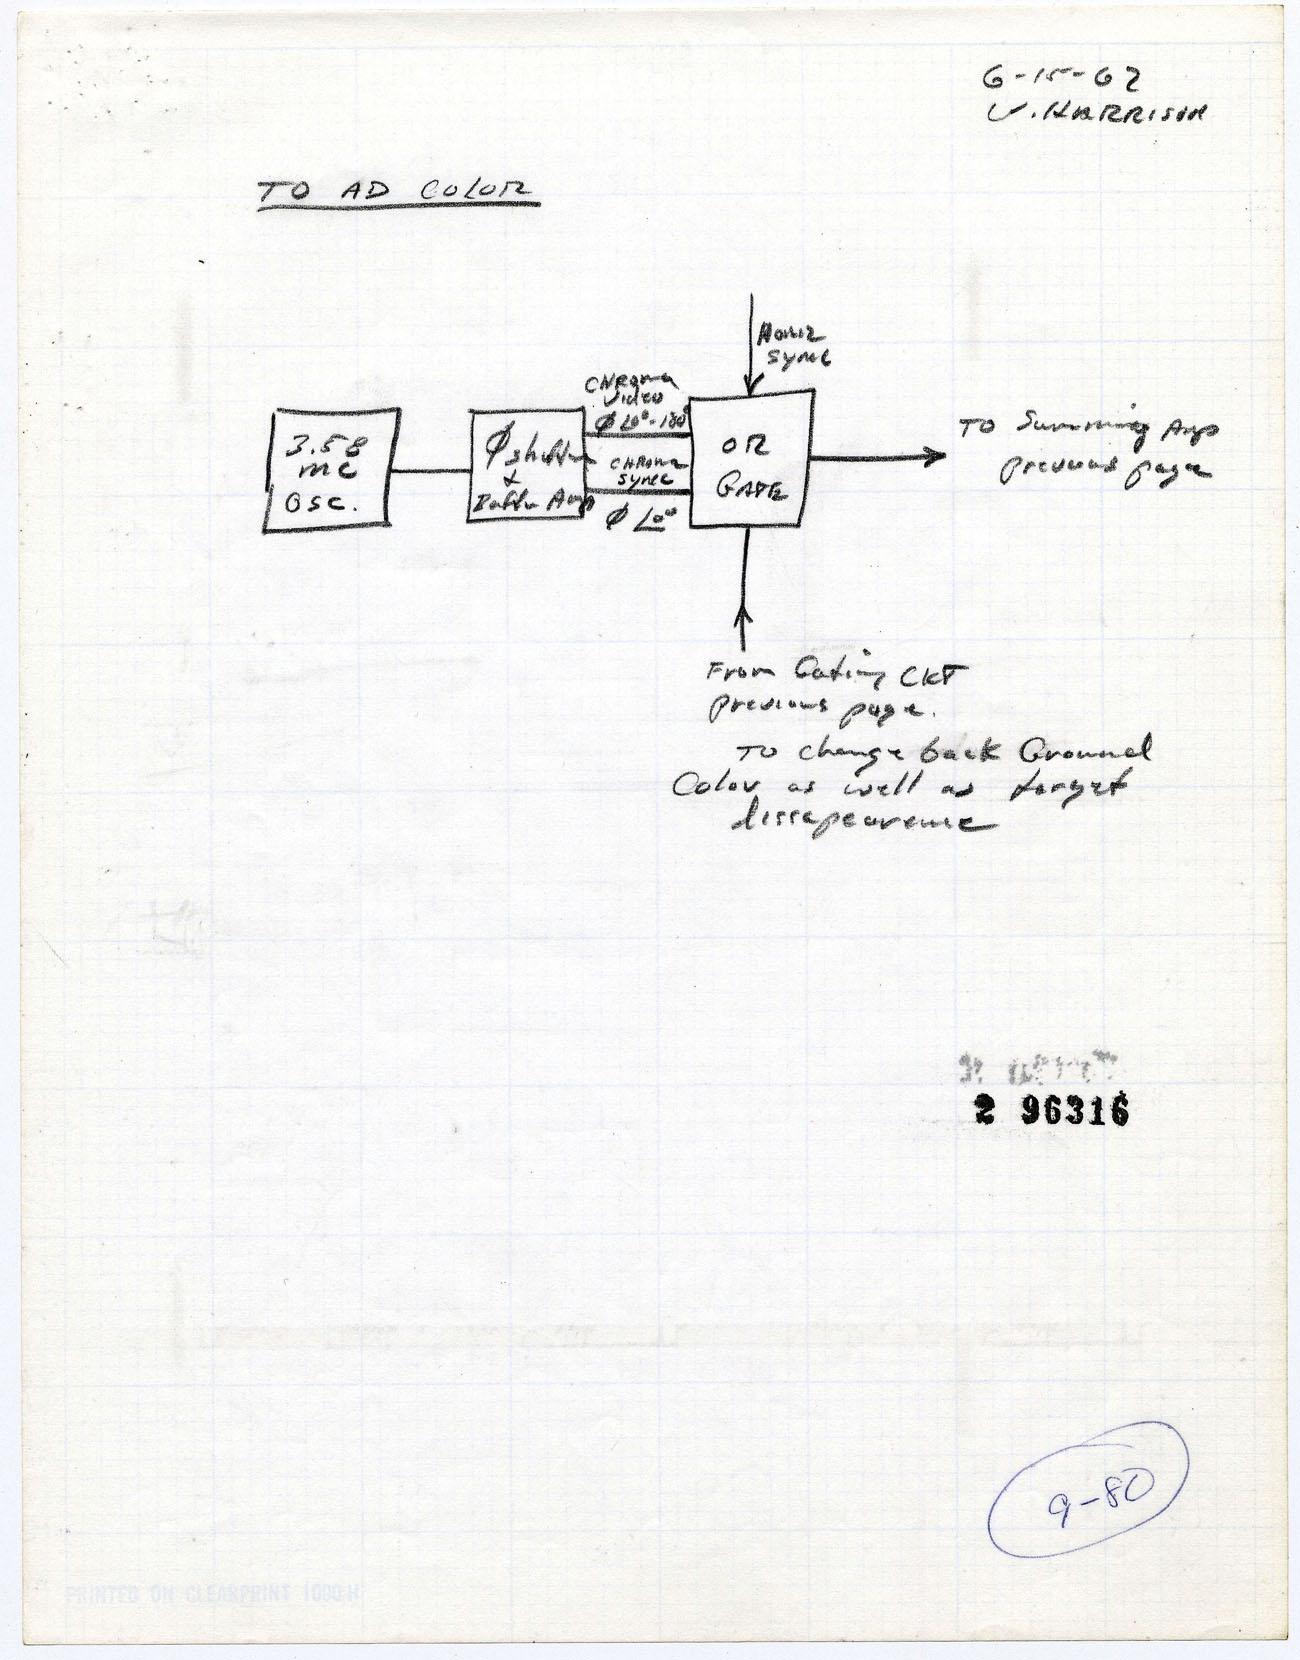 6-15-67
W. HARRISON
TO AD COLOR
HORIZ
SYNC
CHROMA
Video
φ ∠0°-180°
3.58
mc
OSC.
φ shifter
&
Buffer Amp
CHROMA
SYNC
φ ∠0°
OR
GATE
TO Summing Amp
previous page
From Gating CKT
previous page.
TO change back Ground
Color as well as target
dissapearence
2 96316
9-80
PRINTED ON CLEARPRINT 1000H